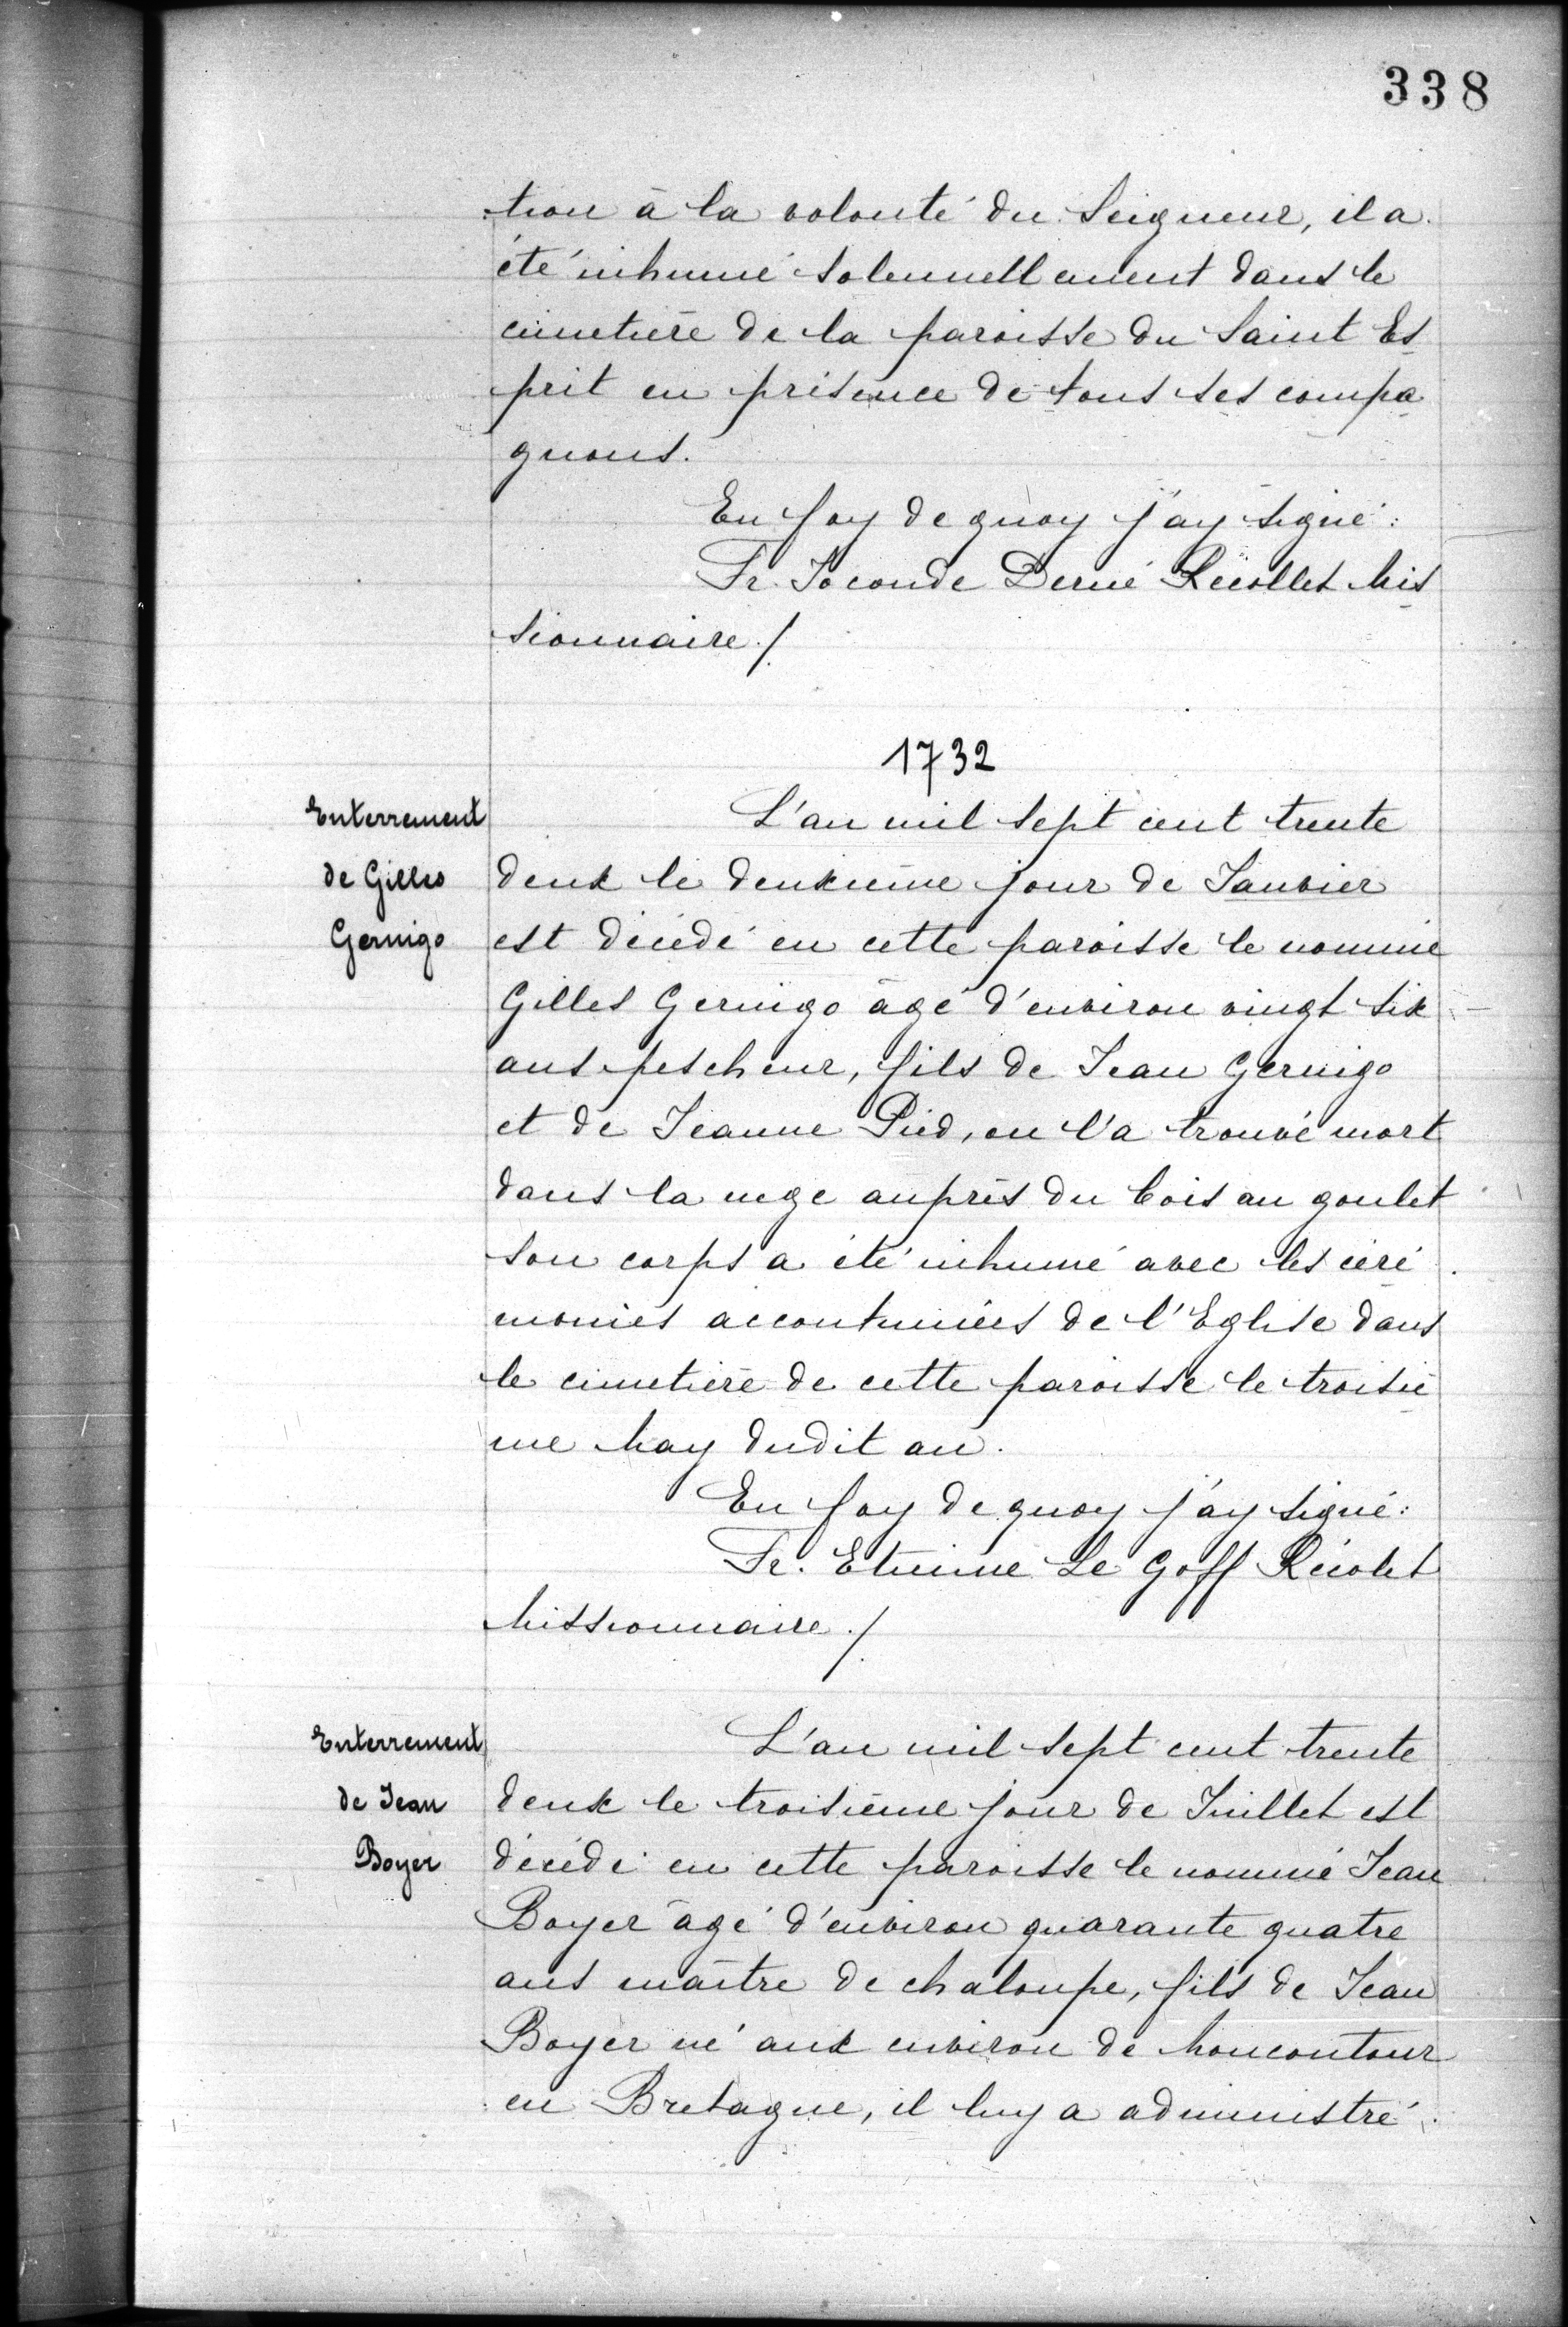 338
tion à la volonté du Seigneur, il a
été inhumé solennellement dans le
cimetière de la paroisse du Saint Es
prit en présence de tous ses compa
gnons.
En foy de quoy j'ay signé :
Fr. Joconde Derné Récollet Mis
sionnaire./
1732
Enterrement
de Gilles
Gernigo
L'an mil sept cent trente
deux le deuxième jour de Janvier
est décédé en cette paroisse le nommé
Gilles Gernigo âgé d'environ vingt six
ans pescheur, fils de Jean Gernigo
et de Jeanne Pied, on l'a trouvé mort
dans la nege auprès du bois au goulet
son corps a été inhumé avec les céré
monies accoutumées de l'Eglise dans
le cimetière de cette paroisse le troisiè
me May dudit an.
En foy de quoy j'ay signé :
Fr. Etienne Le Goff Récolet
Missionnaire./
Enterrement
de Jean
Boyer
L'an mil sept cent trente
deux le troisième jour de Juillet est
décédé en cette paroisse le nommé Jean
Boyer âgé d'environ quarante quatre
ans maître de chaloupe, fils de Jean
Boyer né aux environ de Moncontour
en Bretagne, il luy a administré